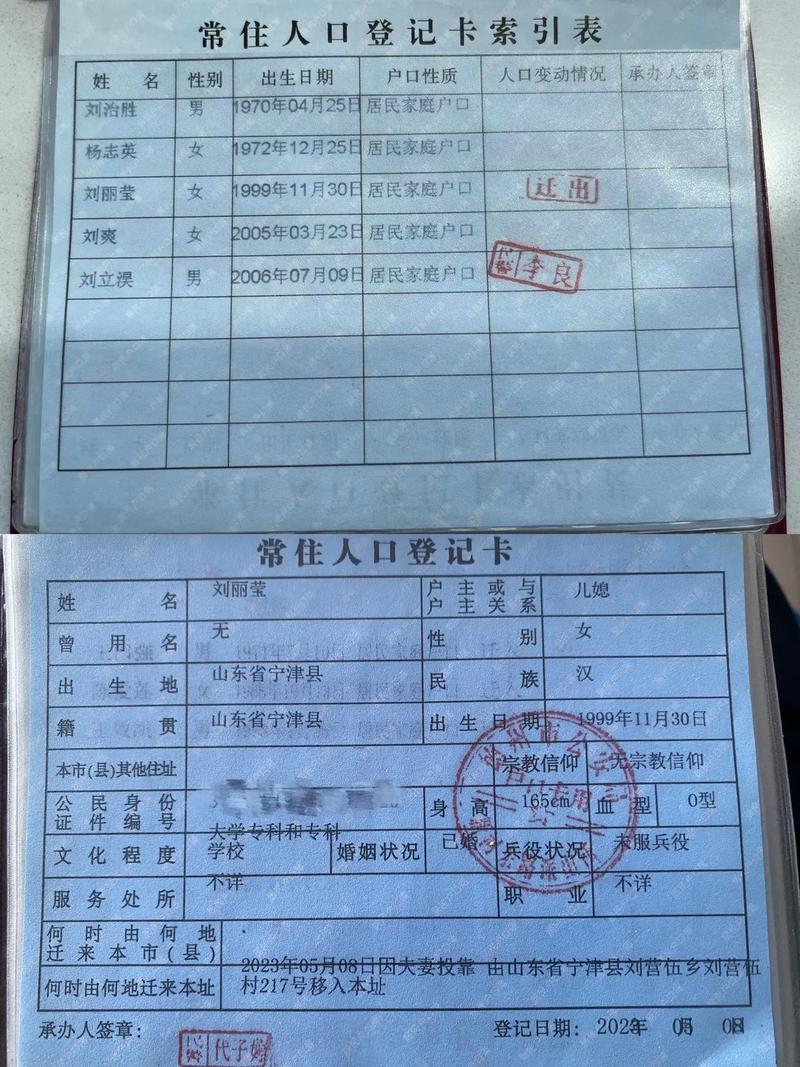 常住人口登记卡索引表
姓 名 性别 出生日期 户口性质 人口变动情况 承办人签章
刘治胜 男 1970年04月25日 居民家庭户口
杨志英 女 1972年12月25日 居民家庭户口
刘丽莹 女 1999年11月30日 居民家庭户口 迁出
刘爽 女 2005年03月23日 居民家庭户口
刘立淏 男 2006年07月09日 居民家庭户口 李良
常住人口登记卡
姓 名 刘丽莹 户主或与户主关系 儿媳
曾用名 无 性 别 女
出生地 山东省宁津县 民 族 汉
籍 贯 山东省宁津县 出生日期 1999年11月30日
本市(县)其他住址 宗教信仰 无宗教信仰
公民身份证件编号 身 高 165cm 血 型 O型
文化程度 大学专科和专科学校 婚姻状况 已婚 兵役状况 未服兵役
服务处所 不详 职 业 不详
何时由何地迁来本市(县)
何时由何地迁来本址 2023年05月08日因夫妻投靠 由山东省宁津县刘营伍乡刘营伍村217号移入本址
承办人签章: 登记日期: 2023年 05月 08日